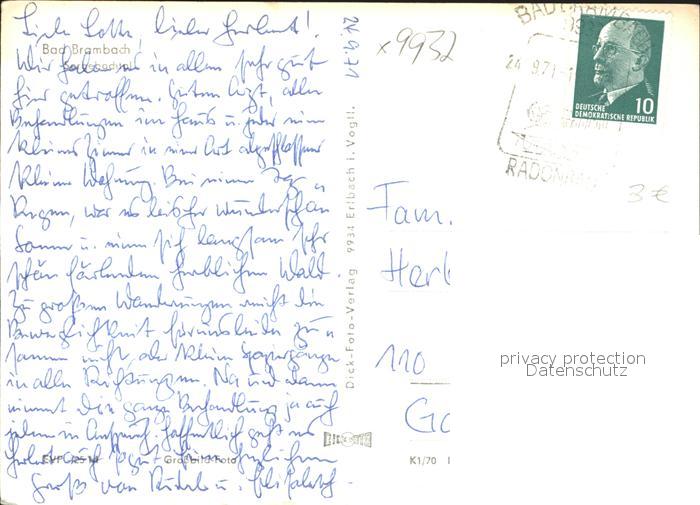 Liebe Lotte, lieber Herbert!
Bad Brambach
Wir haben es in allem sehr gut
hier getroffen. Guten Arzt, alle
Behandlungen im Haus u. jeder sein
kleines Zimmer in einer Art abgeschlossener
kleine Wohnung. Bei einem Tag
Regen, war es bisher wunderschön
Sonne u. nun sich langsam sehr
schön färbenden herbstlichen Wald.
Zu großen Wanderungen reicht die
Beweglichkeit
nicht, aber kleine Spaziergänge
in alle Richtungen. Na und dann
nimmt die ganze Behandlung ja auch
jeden in Anspruch. Hoffentlich geht es
EVP
Großbild-Foto
Gruß von u. Elisabeth.
24.9.71
Dick-Foto-Verlag 9934 Erlbach i. Vogtl.
DICK-FOTO
K1/70
x9932
BAD BRAMBACH
24.9.71
RADONBAD
DEUTSCHE
DEMOKRATISCHE REPUBLIK
10
3 €
Fam.
Her
110
privacy protection
Datenschutz